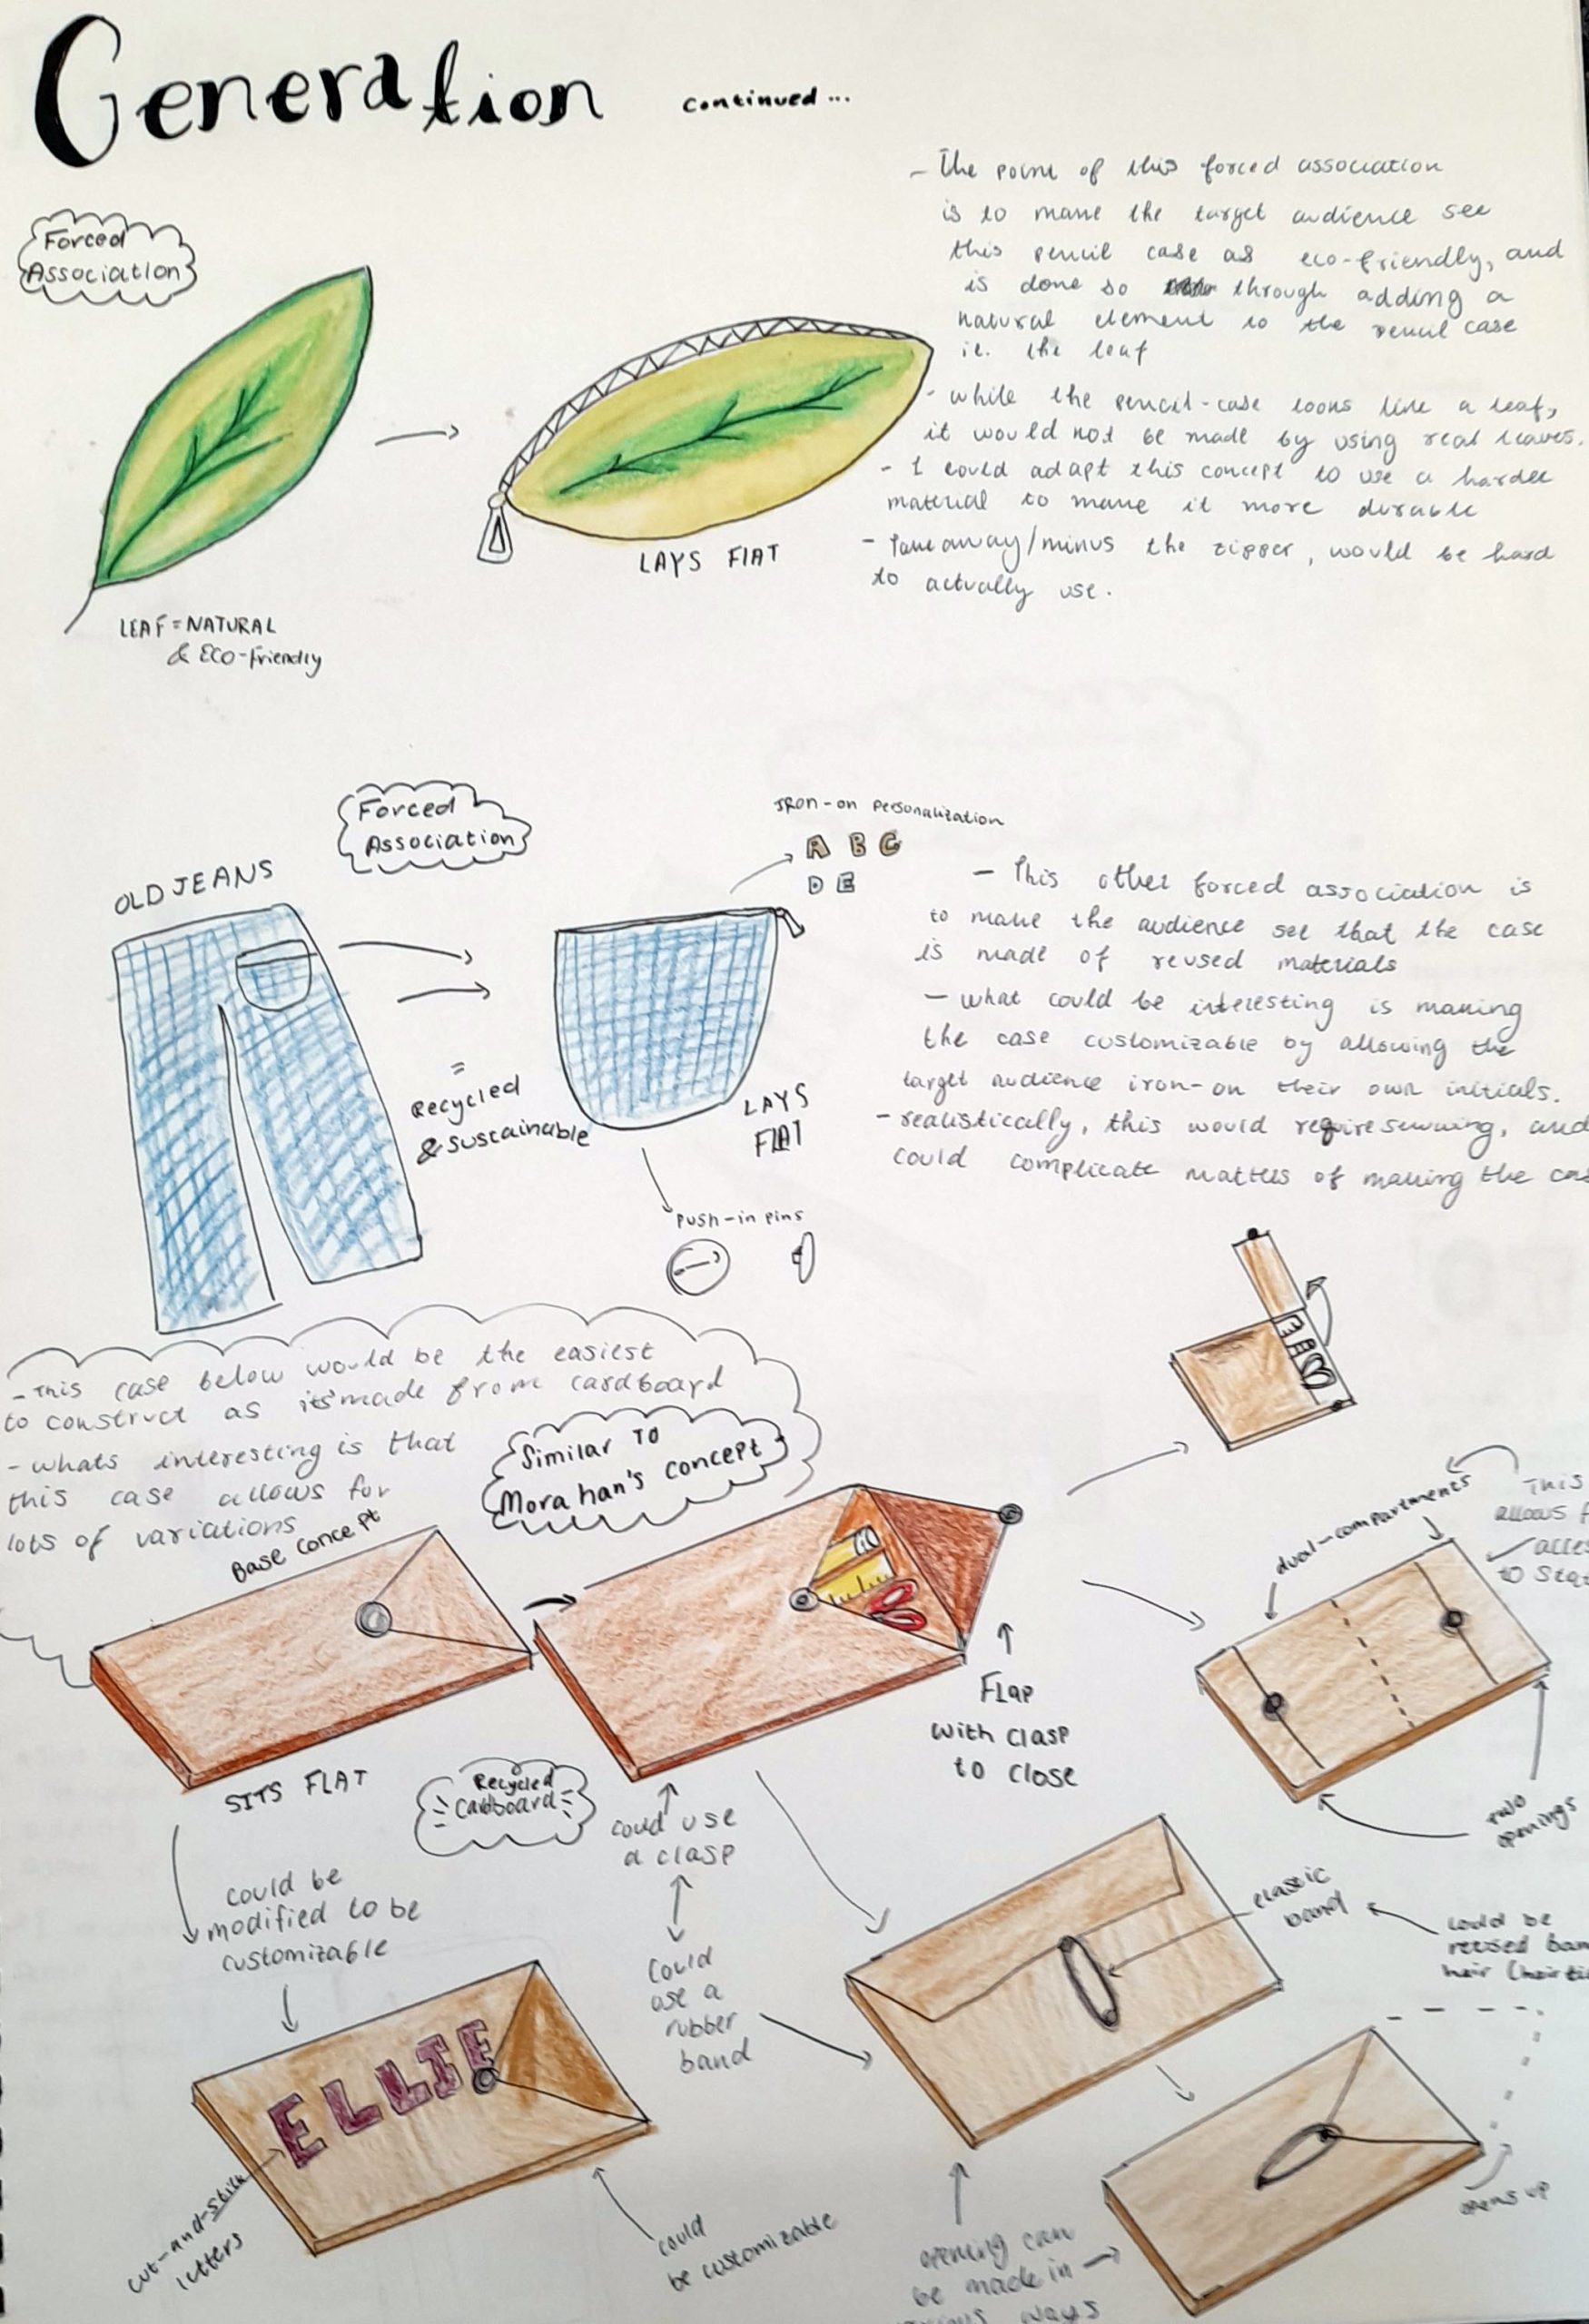 Generation continued...
Forced
Association
LEAF = NATURAL
& Eco-friendly
LAYS FLAT
- The point of this forced association
is to make the target audience see
this pencil case as eco-friendly, and
is done so through adding a
natural element to the pencil case
ie. the leaf
- while the pencil-case looks like a leaf,
it would not be made by using real leaves.
- I could adapt this concept to use a harder
material to make it more durable
- Take away/minus the zipper, would be hard
to actually use.
Forced
Association
OLD JEANS
=
Recycled
& sustainable
Iron-on personalization
A B C
D E
LAYS
FLAT
push-in pins
- This other forced association is
to make the audience see that the case
is made of reused materials
- what could be interesting is making
the case customizable by allowing the
target audience iron-on their own initials.
- realistically, this would require sewing, and
could complicate matters of making the
- This case below would be the easiest
to construct as its made from cardboard
- whats interesting is that
this case allows for
lots of variations
Similar To
Morahan's concept
Base concept
SITS FLAT
Recycled
Cardboard
Flap
with clasp
to close
could use
a clasp
could
use a
rubber
band
dual-compartments
This
allows
to
two
openings
could be
modified to be
customizable
ELLIE
cut-and-stick
letters
could
be customizable
elastic
band
could be
reused
hair
opens up
opening can
be made in
ways